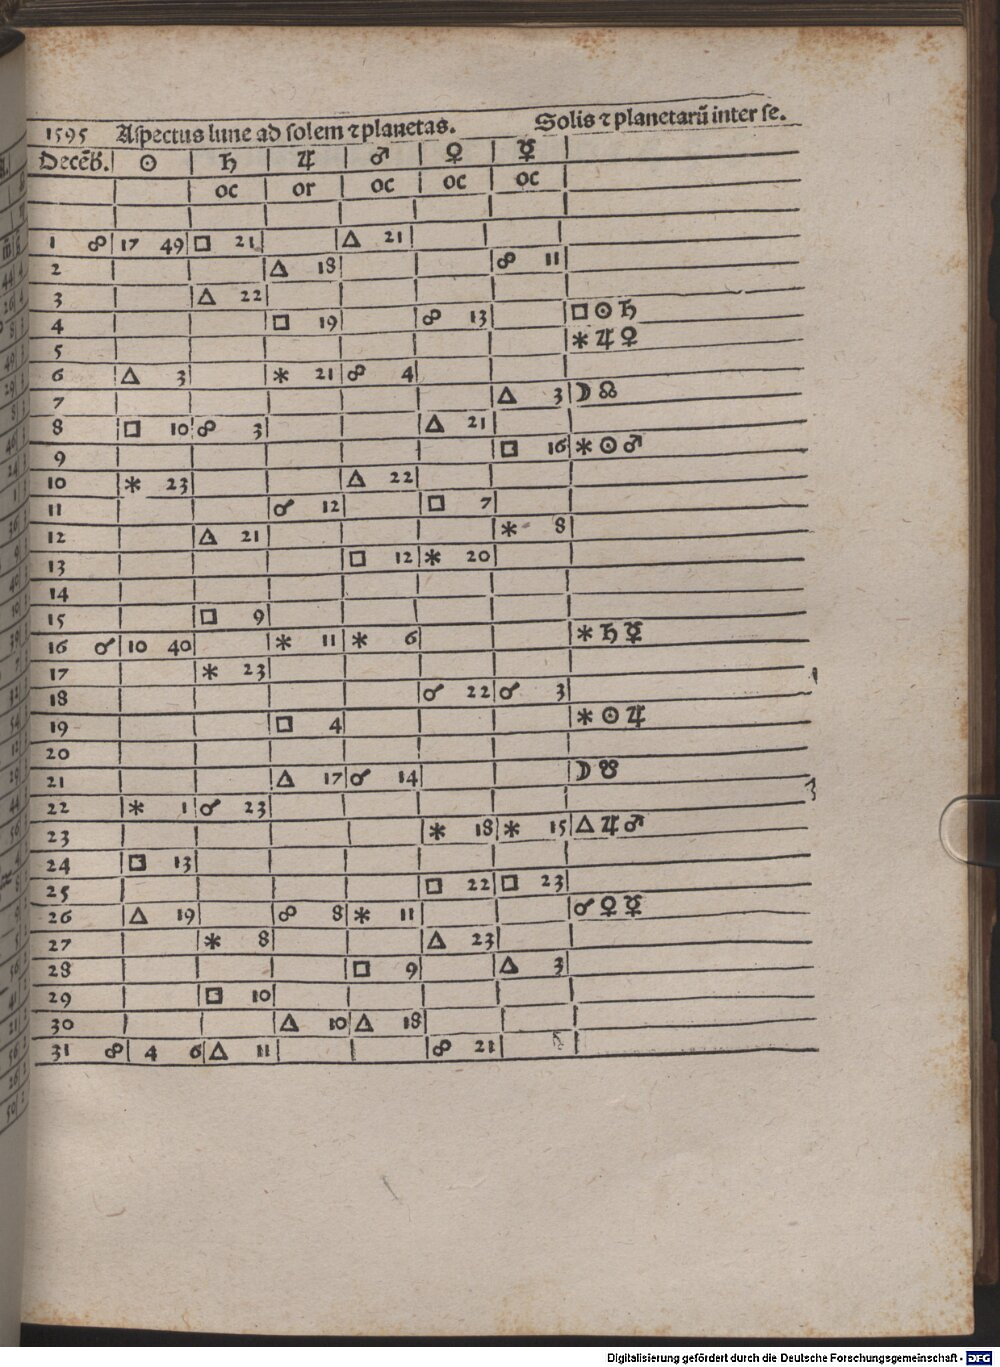 1595 Aspectus lune ad solem ⁊ planetas. Solis ⁊ planetarū inter se.
Decēb. ☉ ♄ ♃ ♂ ♀ ☿
oc or oc oc oc
1 ☍ 17 49 □ 21 △ 21
2 △ 18 ☍ 11
3 △ 22
4 □ 19 ☍ 13 □ ☉ ♄
5 ⚹ ♃ ♀
6 △ 3 ⚹ 21 ☍ 4
7 △ 3 ☽ ☊
8 □ 10 ☍ 3 △ 21
9 □ 16 ⚹ ☉ ♂
10 ⚹ 23 △ 22
11 ☌ 12 □ 7
12 △ 21 ⚹ 8
13 □ 12 ⚹ 20
14
15 □ 9
16 ☌ 10 40 ⚹ 11 ⚹ 6 ⚹ ♄ ☿
17 ⚹ 23
18 ☌ 22 ☌ 3
19 □ 4 ⚹ ☉ ♃
20
21 △ 17 ☌ 14 ☽ ☋
22 ⚹ 1 ☌ 23
23 ⚹ 18 ⚹ 15 △ ♃ ♂
24 □ 13
25 □ 22 □ 23
26 △ 19 ☍ 8 ⚹ 11 ☌ ♀ ☿
27 ⚹ 8 △ 23
28 □ 9 △ 3
29 □ 10
30 △ 10 △ 18
31 ☍ 4 6 △ 11 ☍ 21
Digitalisierung gefördert durch die Deutsche Forschungsgemeinschaft - DFG